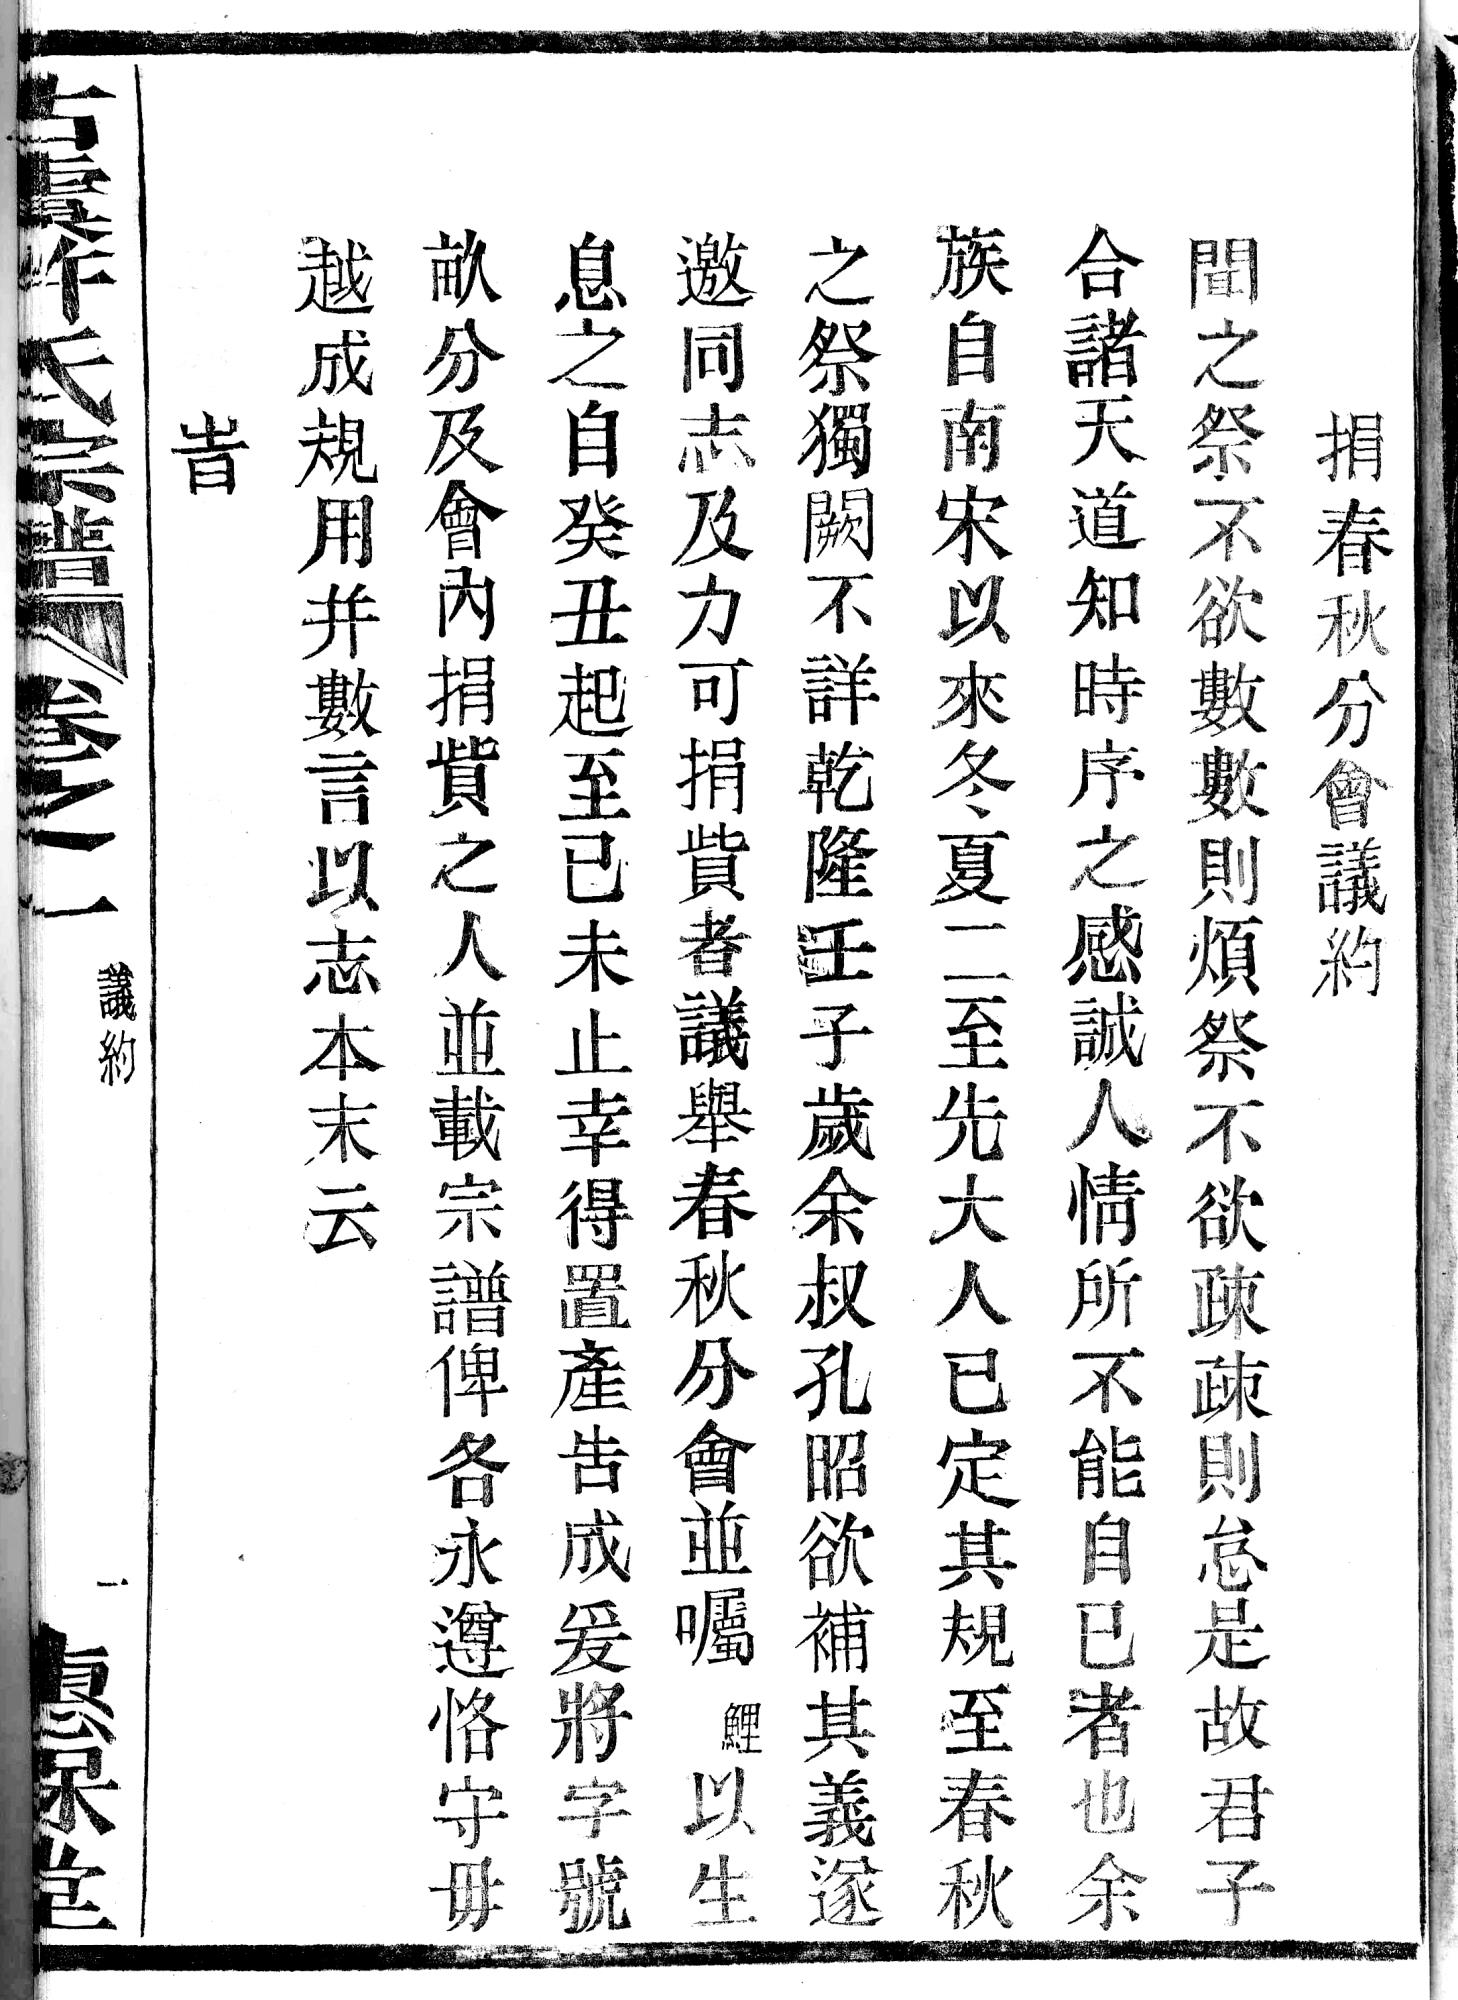 捐春秋分會議約
聞之祭不欲數數則煩祭不欲疎疎則怠是故君子
合諸天道知時序之感誠人情所不能自已者也余
族自南宋以來冬夏二至先大人已定其規至春秋
之祭獨闕不詳乾隆壬子歲余叔孔昭欲補其義遂
邀同志及力可捐貲者議舉春秋分會並囑鯉以生
息之自癸丑起至已未止幸得置產告成爰將字號
畝分及會內捐貲之人並載宗譜俾各永遵恪守毋
越成規用并數言以志本末云
旹
許氏宗譜
卷之一
議約
一
惠保堂